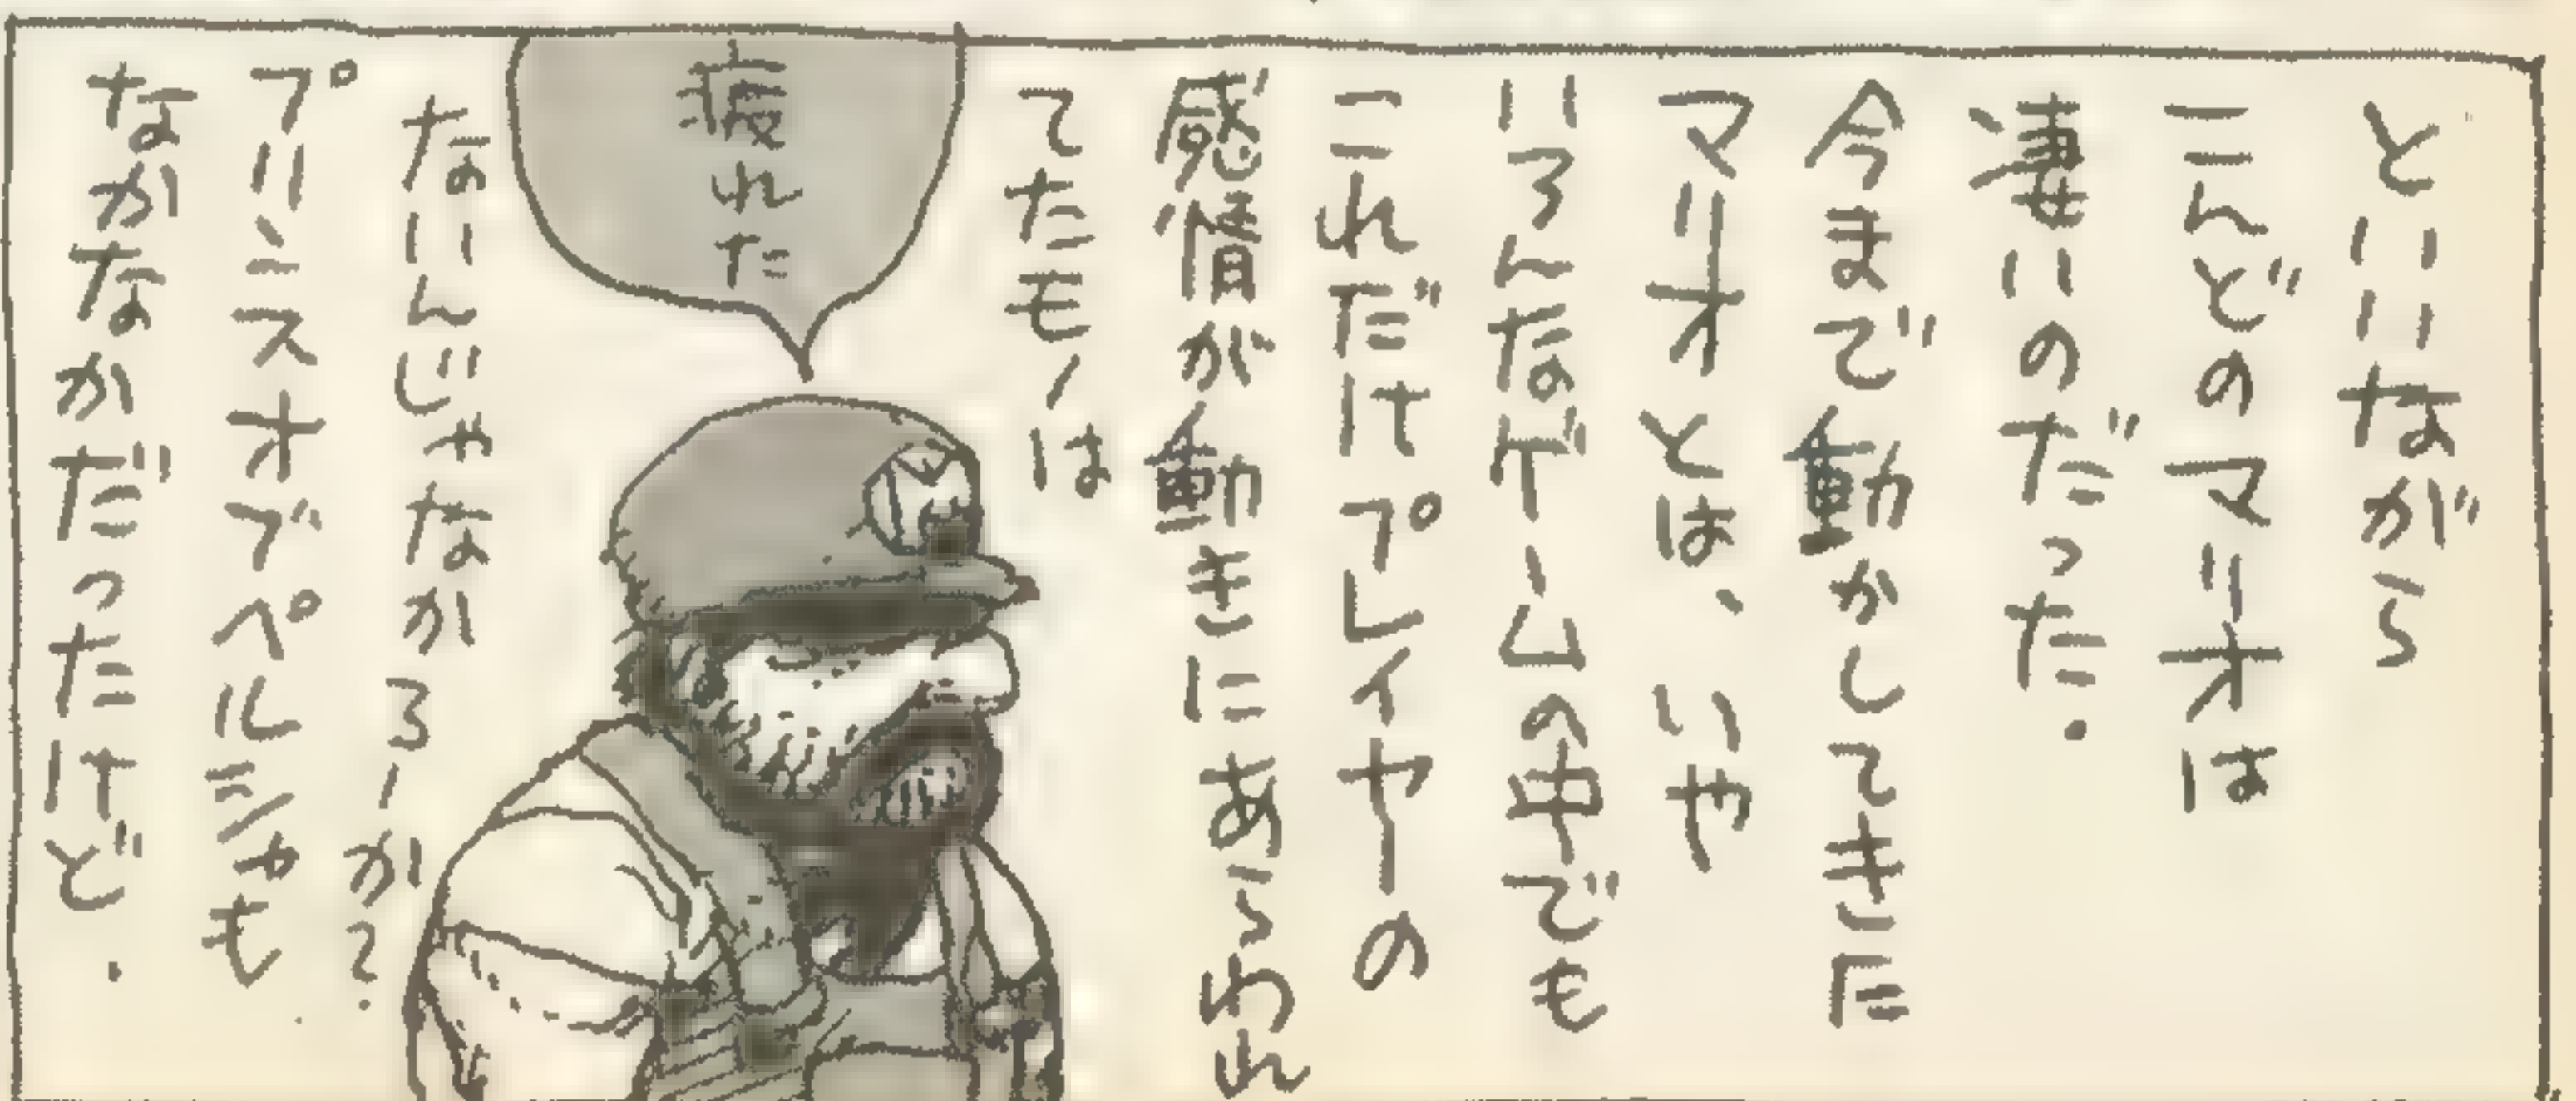 といいながら
こんどのマリオは
凄いのだった.
今まで動かしてきた
マリオとは、いや
いろんなゲームの中でも
これだけプレイヤーの
感情が動きにあらわれ
てたモノは
疲れた
ないんじゃなかろーか?
プリンスオブペルシャも
なかなかだったけど.